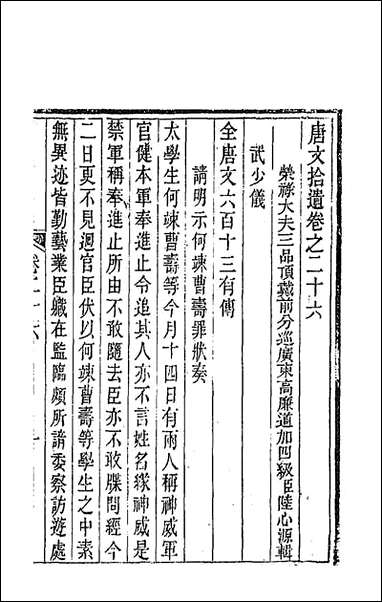 唐文拾遺卷之二十六
榮祿大夫三品頂戴前分巡廣東高廉道加四級臣陸心源輯
武少儀
全唐文六百十三有傳
請明示何竦曹壽罪狀奏
太學生何竦曹壽等今月十四日有兩人稱神威軍
官健本軍奉進止令追其人亦不言姓名緣神威是
禁軍稱奉進止所由不敢隨去臣亦不敢牒問經今
二日更不見迴官臣伏以何竦曹壽等學生之中素
無異迹皆勤藝業臣職在監臨頗所請委察訪遊處